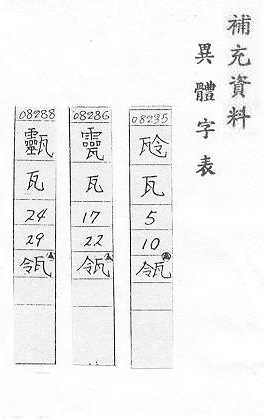 補充資料
異體字表
08235
瓦
5
10
瓴
08236
瓦
17
22
瓴
08238
瓦
24
29
瓴